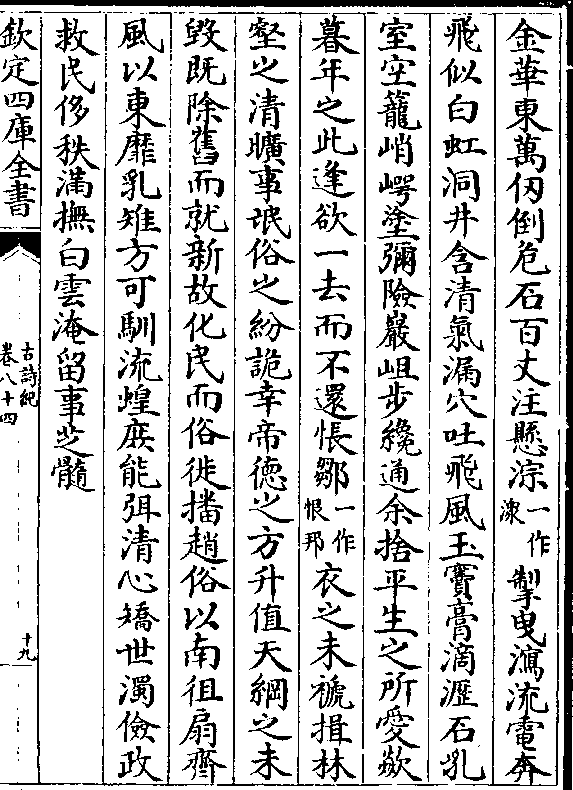 金華東萬仭倒危石百丈注懸淙一作潨掣曳瀉流電奔
飛似白虹洞井含清氣漏穴吐飛風玉竇膏滴瀝石乳
室空籠峭崿塗彌險巖岨步纔通余捨平生之所愛歘
暮年之此逢欲一去而不還恨鄒一作恨邦衣之未褫揖林
壑之清曠事氓俗之紛詭幸帝德之方升值天綱之未
毀既除舊而就新故化民而俗徙播趙俗以南徂扇齊
風以東靡乳雉方可馴流蝗庶能弭清心矯世濁儉政
救民侈秩滿撫白雲淹留事芝髓
欽定四庫全書
古詩紀
卷八十四
十九